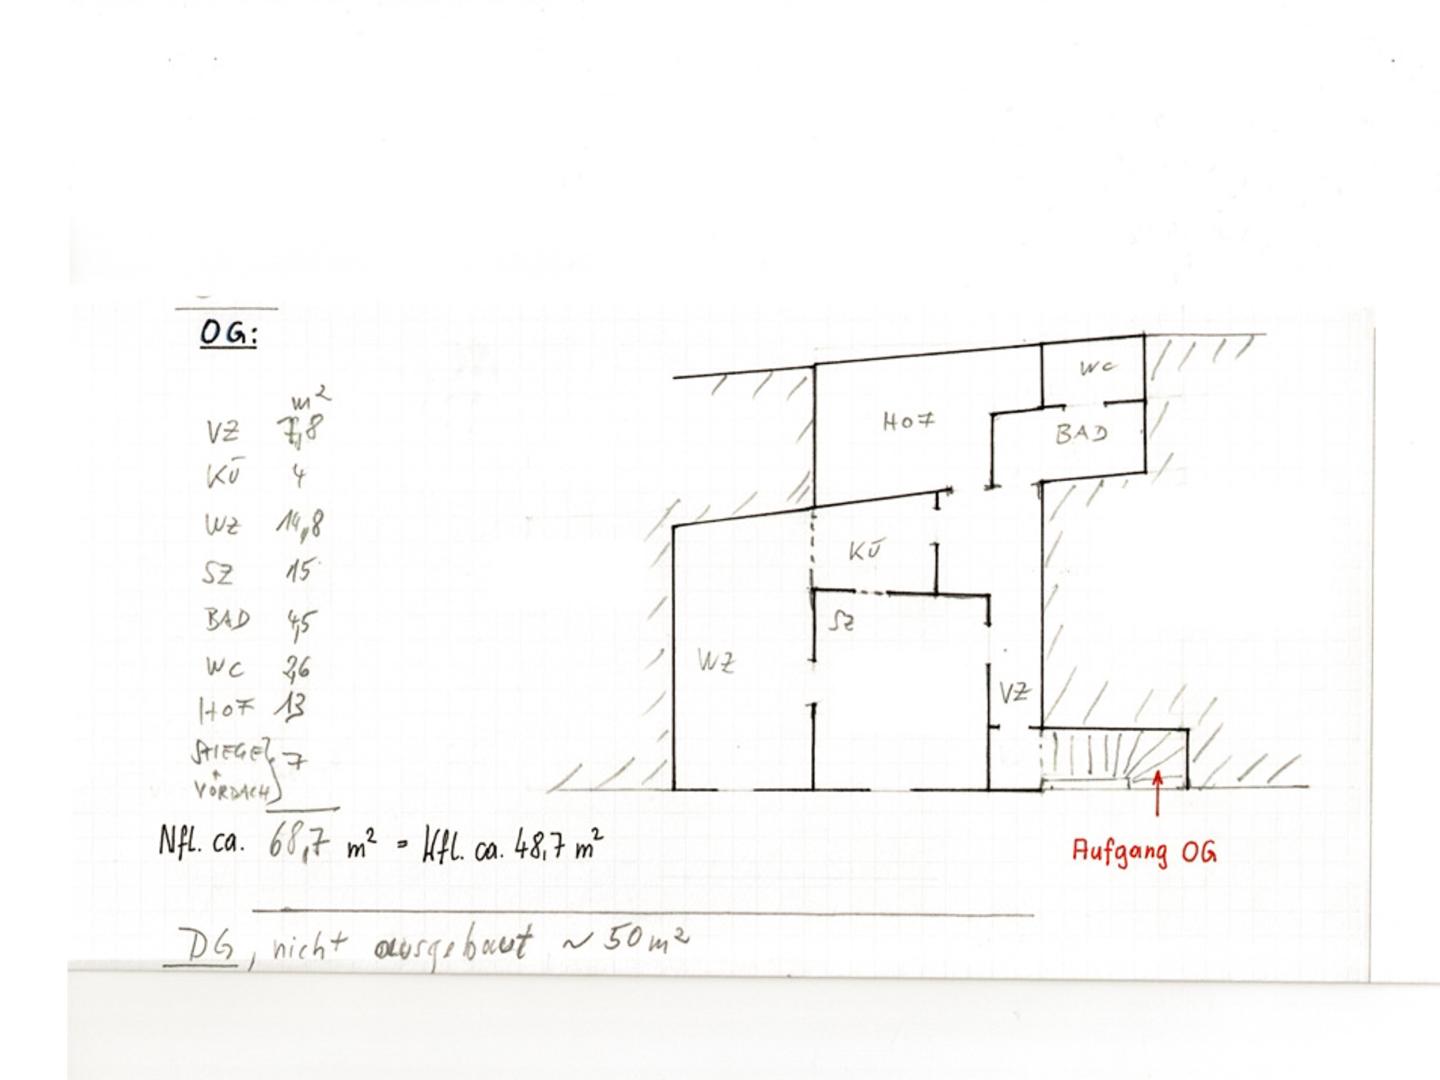 OG:
m²
VZ 7,8
KÜ 4
WZ 14,8
SZ 15
BAD 4,5
WC 2,6
HOF 13
STIEGE + 7
VORDACH
Nfl. ca. 68,7 m² = Wfl. ca. 48,7 m²
DG, nicht ausgebaut ~ 50 m²
WC
HOF
BAD
KÜ
SZ
WZ
VZ
Aufgang OG